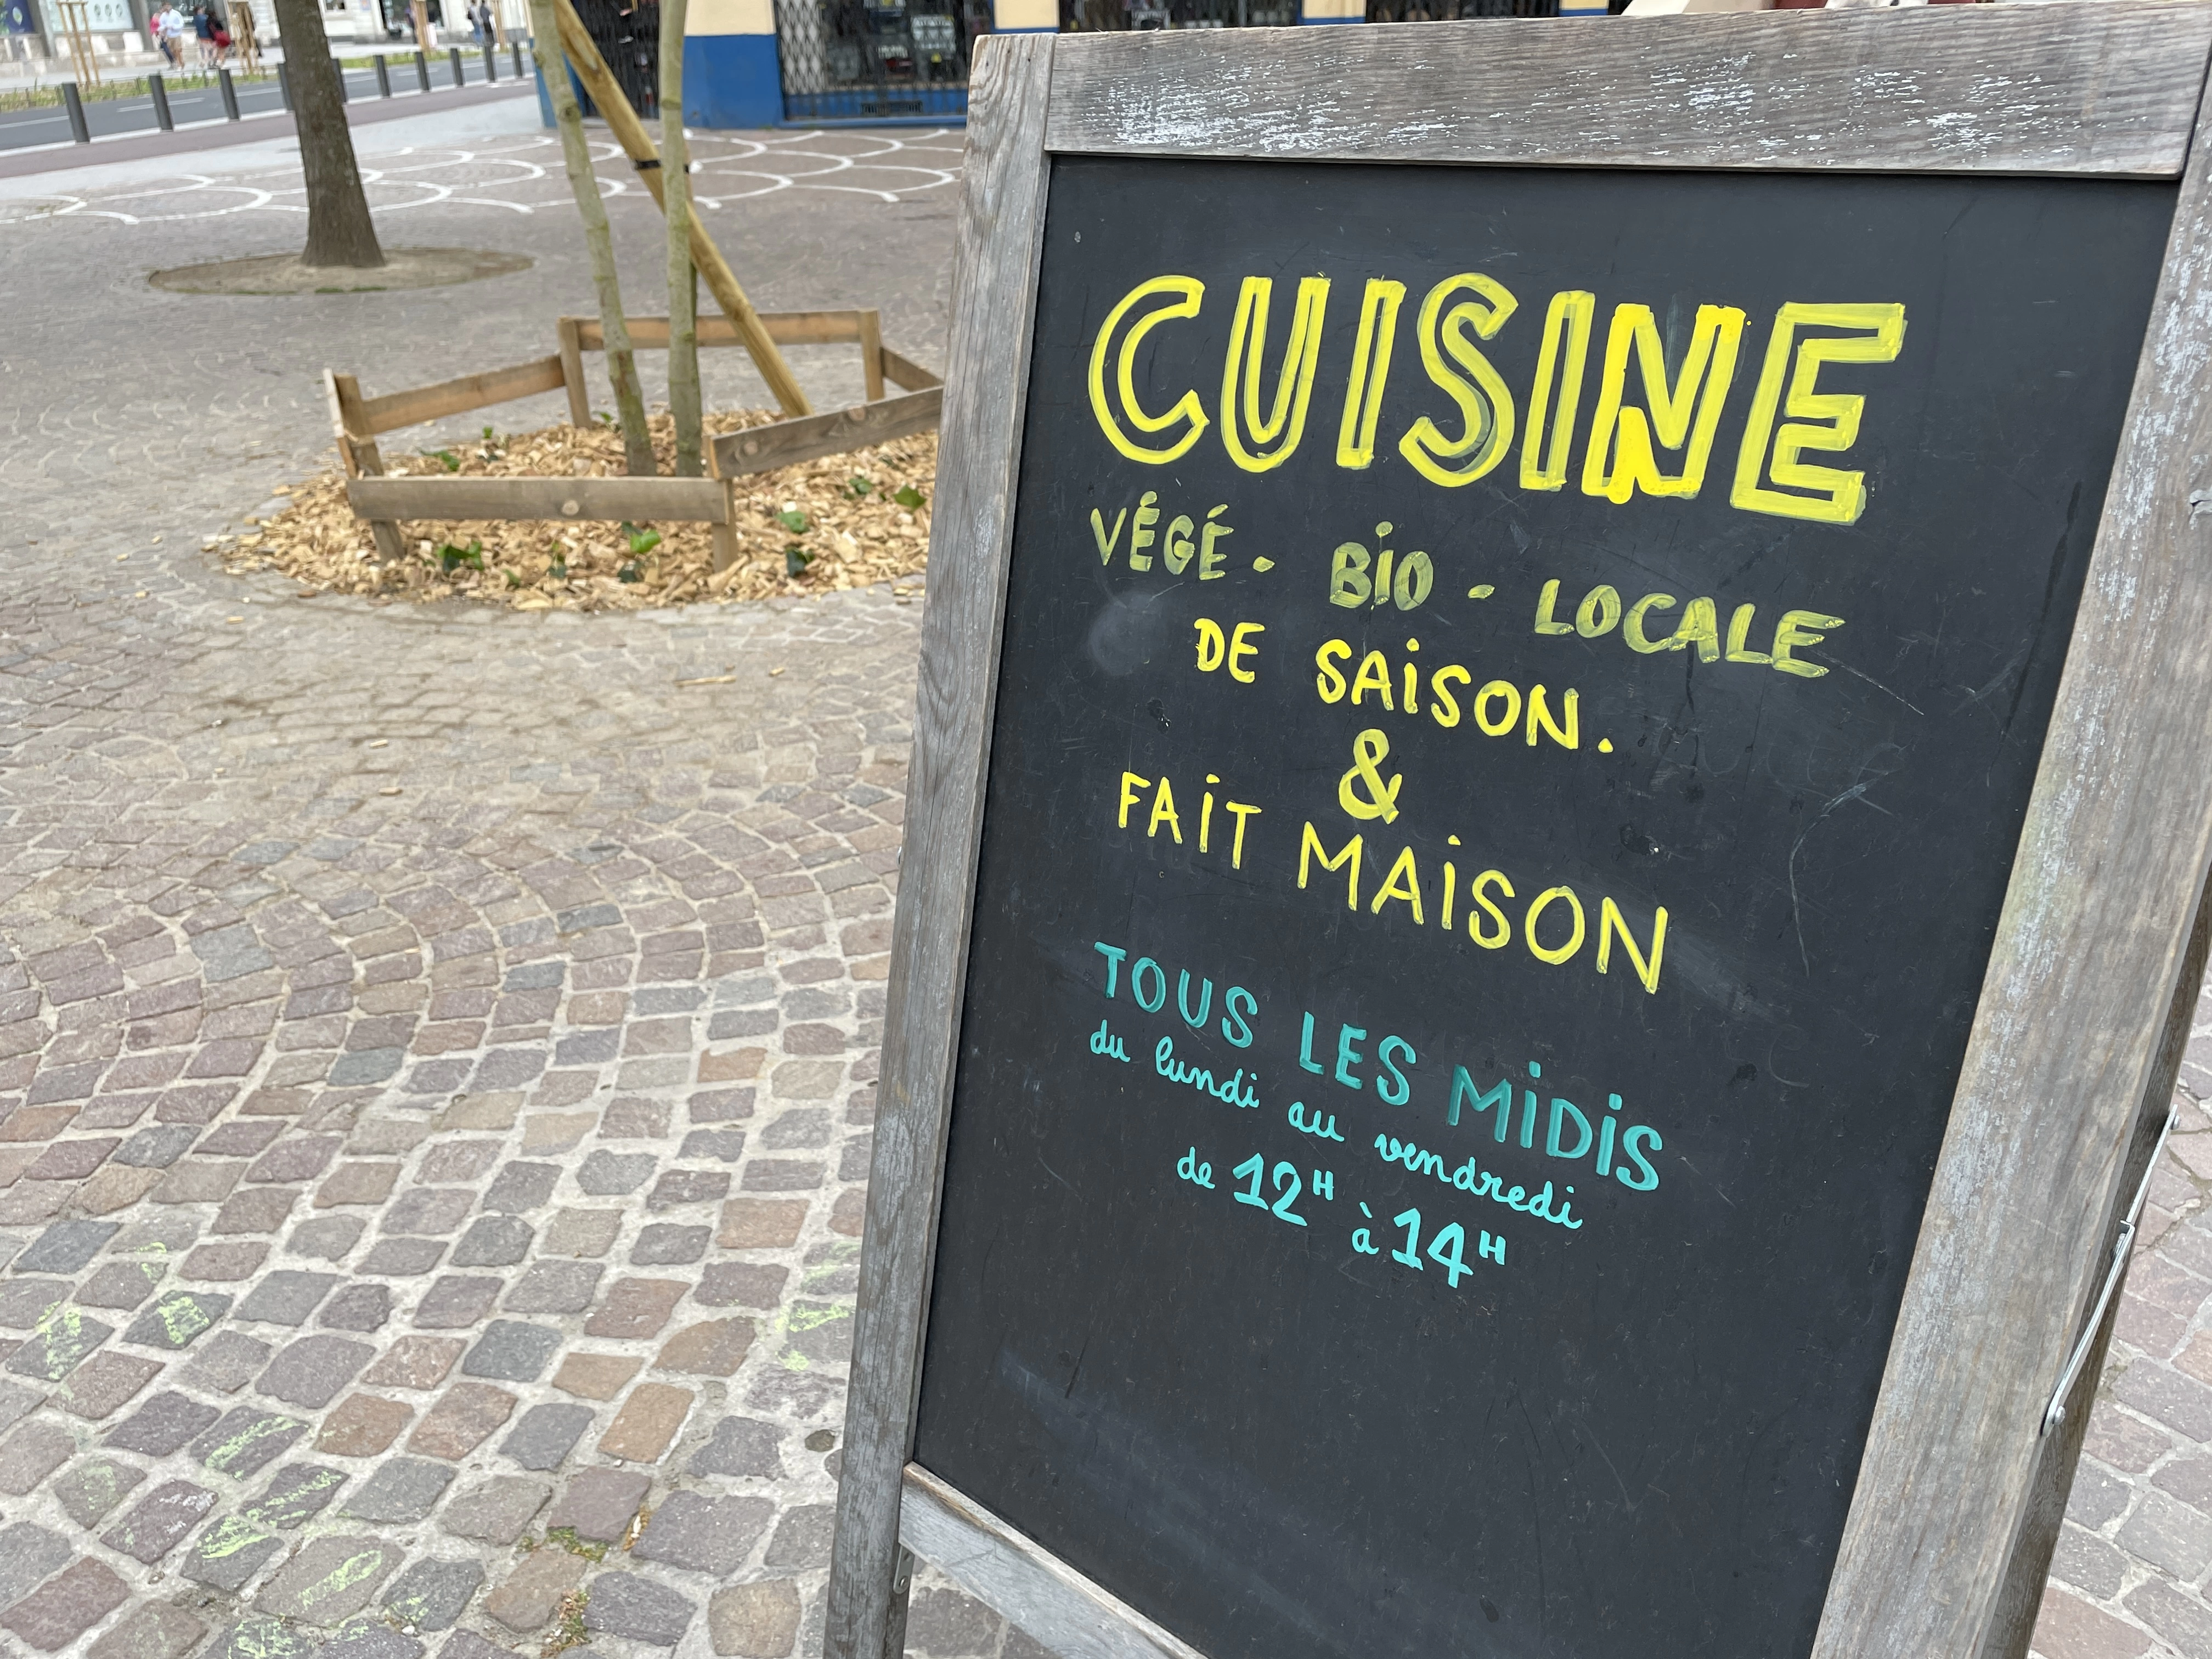 CUISINE
VÉGÉ - BIO - LOCALE
DE SAISON.
&
FAIT MAISON
TOUS LES MIDIS
du lundi au vendredi
de 12H à 14H